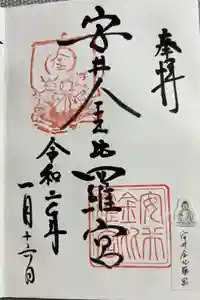 奉拝
安井金比羅宮
令和二年
一月十六日
安井金比羅宮